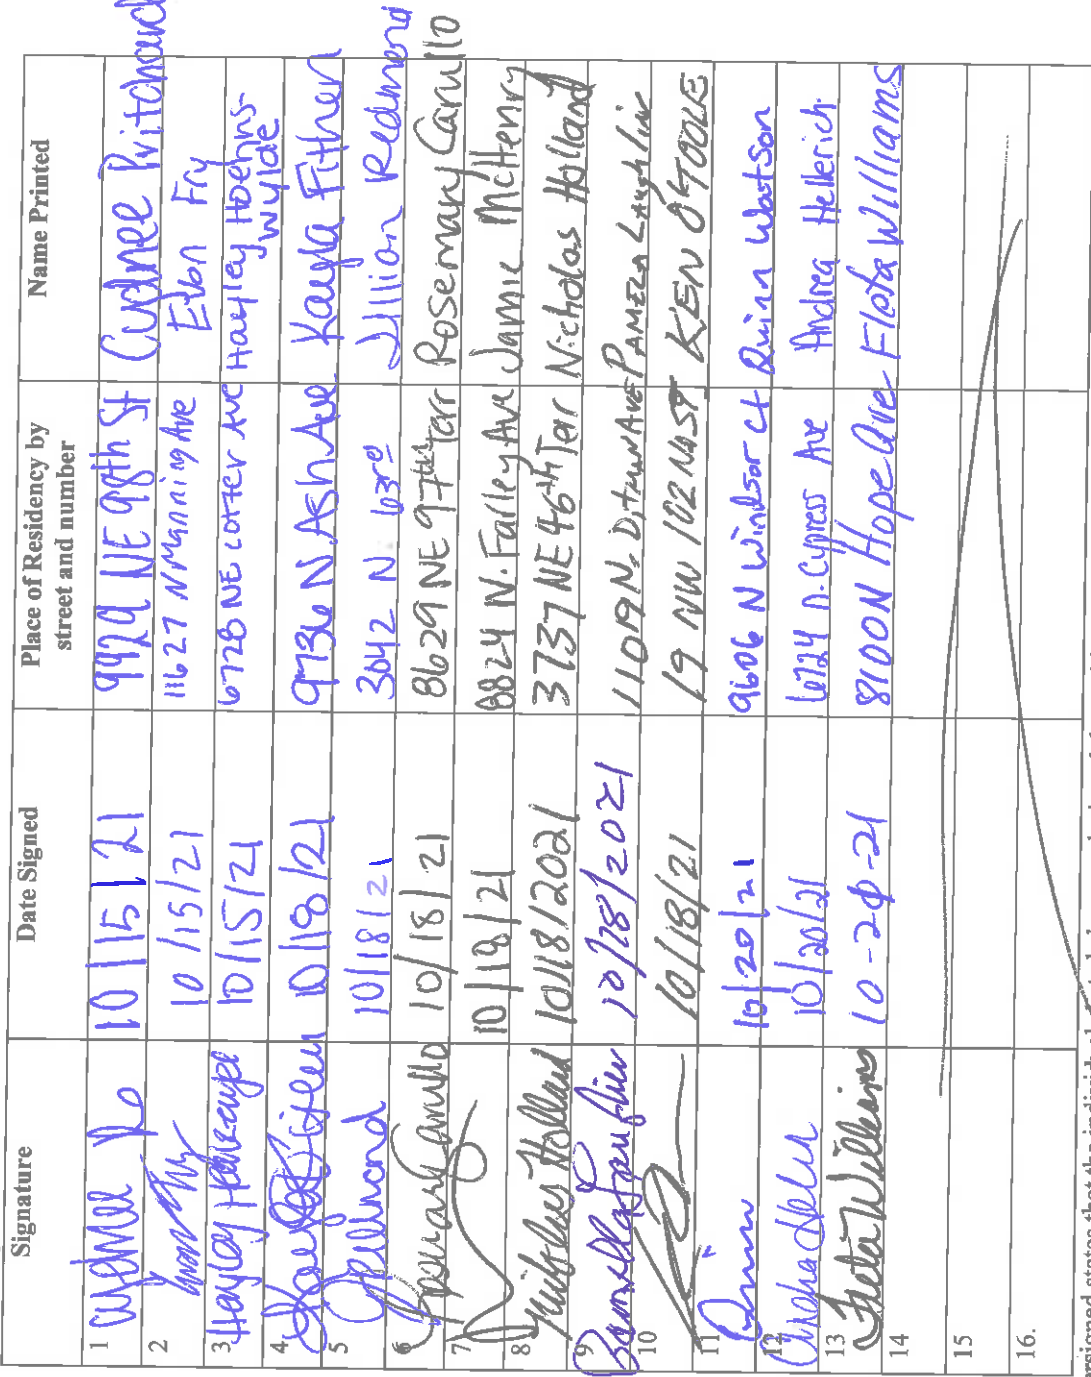 Signature Date Signed Place of Residency by street and number Name Printed
1 10/15/21 9929 NE 98th St Cydnee Pritchard
2 10/15/21 11627 N Manning Ave Fry
3 Hayley 10/15/21 6728 NE Cotter Ave Hayley Hoehns-Wylde
4 10/18/21 9736 N Ash Ave Kayla Fithen
5 Redmond 10/18/21 3042 N 63rd Jillian Redmond
6 Rosemary Carullo 10/18/21 8629 NE 97th Terr Rosemary Carullo
7 10/18/21 8824 N. Farley Ave Jamie McHenry
8 Nicholas Holland 10/18/2021 3737 NE 46th Ter Nicholas Holland
9 Pamella Laughlin 10/18/2021 11019 N. Ditman Ave PAMELA Laughlin
10 10/18/21 19 NW 102 Nd ST KEN O'TOOLE
11 Quinn 10/20/21 9606 N Windsor Ct Quinn Watson
12 10/20/21 6724 N. Cypress Ave Andrea Hellerich
13 Fleta Williams 10-20-21 8100 N Hope Ave Fleta Williams
14
15
16.
states that the individual